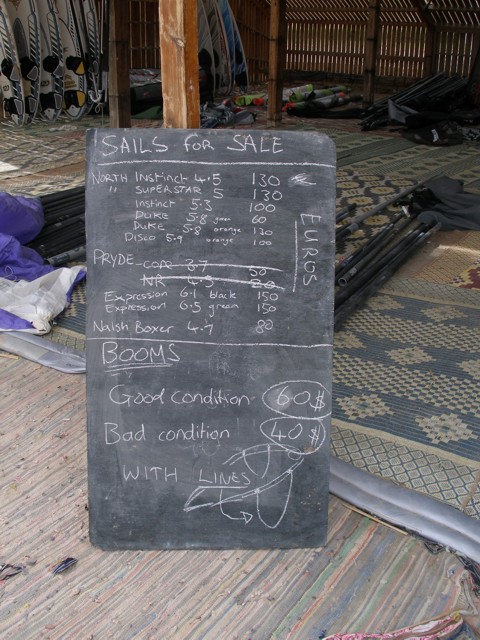 SAILS for SALE
NORTH Instinct 4.5 130
" SUPERSTAR 5 130
Instinct 5.3 100
DUKE 5.8 green 60
DUKE 5.8 orange 130
DISCO 5.9 orange 100
EUROS
PRYDE core 3.7 50
NR 4.5 20
Expression 6.1 black 150
Expression 6.5 green 150
Naish Boxer 4.7 80
BOOMS
Good condition 60$
Bad condition 40$
WITH LINES